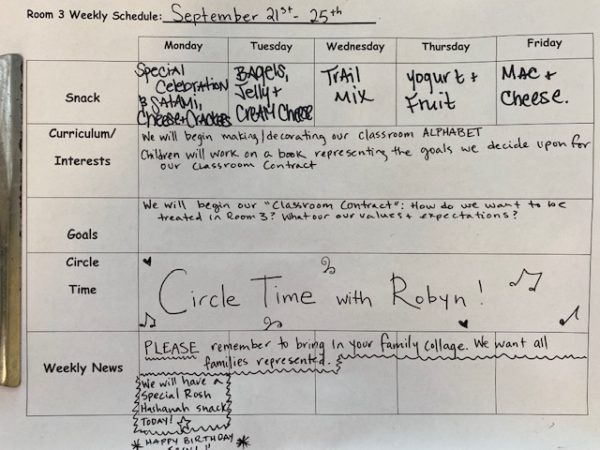 Room 3 Weekly Schedule: September 21st - 25th
Monday Tuesday Wednesday Thursday Friday
Snack
Special
Celebration
& SALAMI,
Cheese+Crackers
BAGELS,
Jelly +
CREAM CHEESE
TRAIL
MIX
yogurt +
Fruit
MAC +
CHEESE.
Curriculum/
Interests
We will begin making/decorating our classroom ALPHABET
Children will work on a book representing the goals we decide upon for
our classroom Contract
Goals
We will begin our "Classroom Contract": How do we want to be
treated in Room 3? What our our values + expectations?
Circle
Time
Circle Time with Robyn!
Weekly News
PLEASE remember to bring in your family collage. We want all
families represented.
We will have a
Special Rosh
Hashanah snack
TODAY!
HAPPY BIRTHDAY